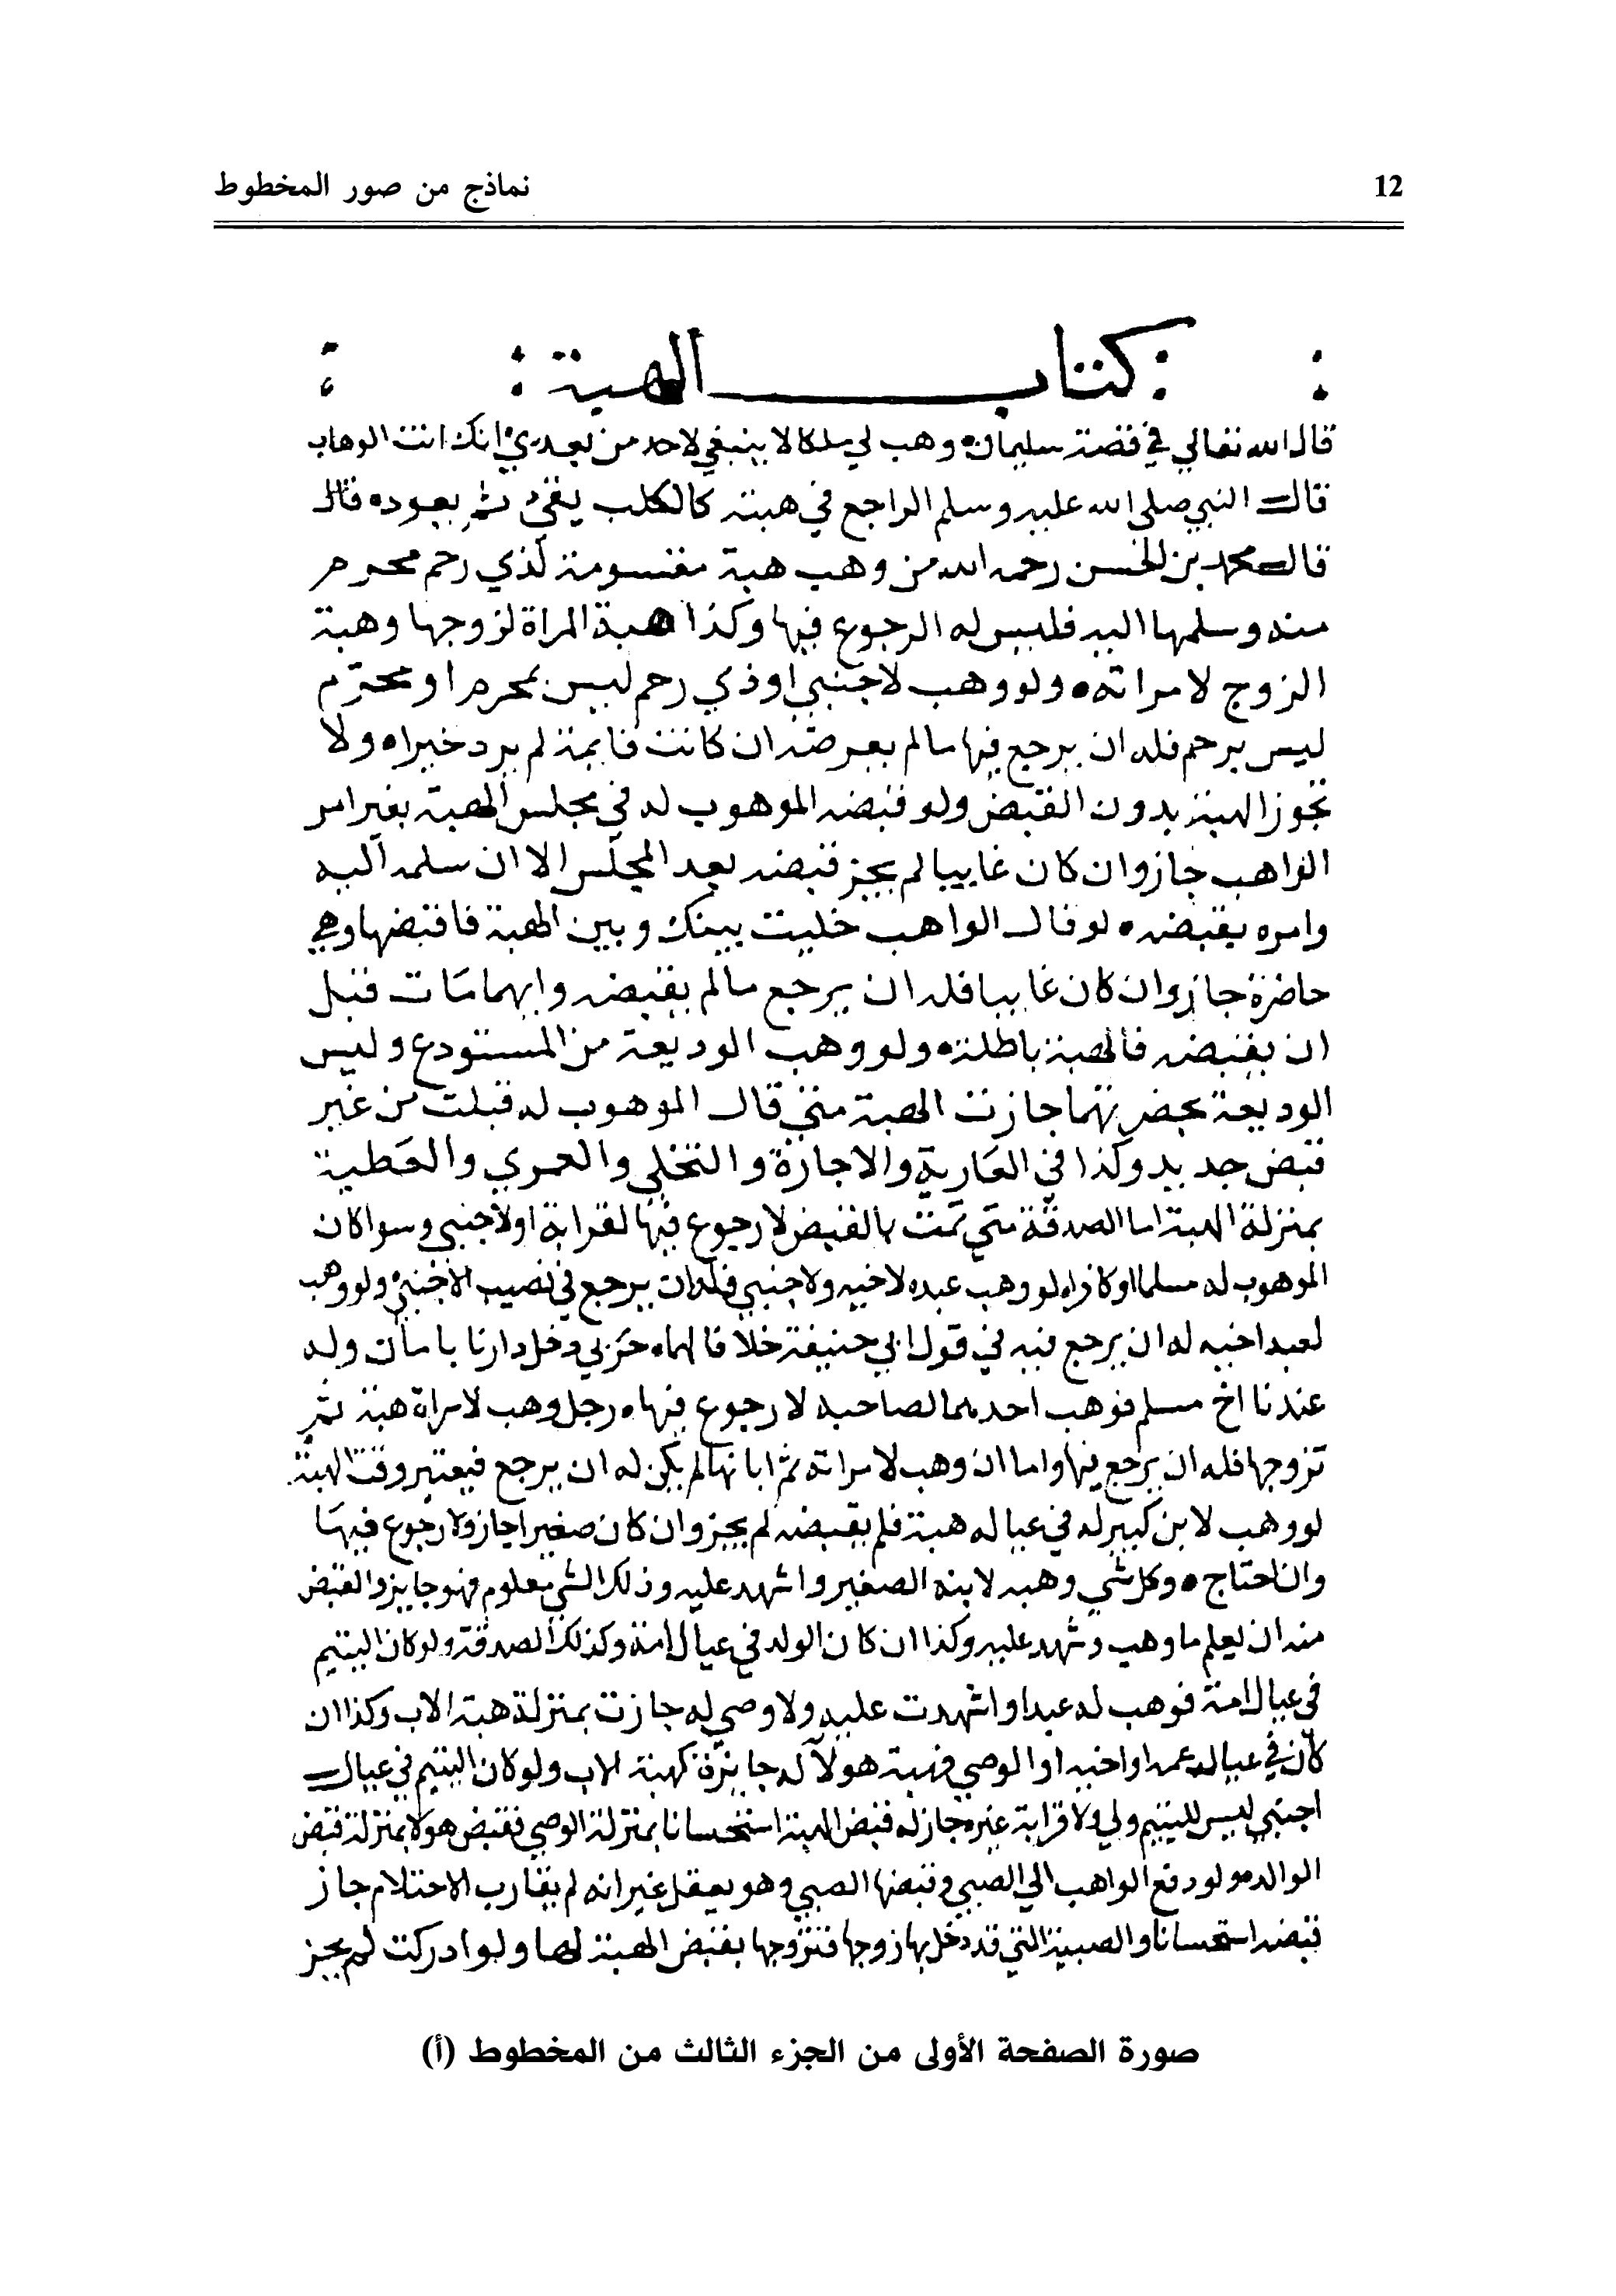 12
نماذج من صور المخطوط
كتاب الهبة
قال الله تعالي في قصة سليمان وهب لي ملكا لا ينبغي لاحد من بعدي انك انت الوهاب
قال النبي صلى الله عليه وسلم الراجع في هبته كالكلب يقئ ثم يعوده قال
قال محمد بن الحسن رحمه الله من وهب هبة مقسومة لذي رحم محرم
منه وسلمها اليه فليس له الرجوع فيها وكذا هبة المراة لزوجها وهبة
الزوج لامراته ولو وهب لاجنبي او ذي رحم ليس بمحرم او محرم
ليس برحم فله ان يرجع فيها مالم يعوضه ان كانت قايمة لم يزد خيرا ولا
تجوز الهبة بدون القبض ولو قبضه الموهوب له في مجلس الهبة بغير امر
الواهب جاز وان كان غايبا لم يجز قبضه بعد المجلس الا ان سلمه اليه
وامره بقبضه لو قال الواهب خليت بينك وبين الهبة فاقبضها وهي
حاضرة جاز وان كان غايبا فله ان يرجع مالم يقبضه وايهما مات قبل
ان يقبضه فالهبة باطلة ولو وهب الوديعة من المستودع وليس
الوديعة بحضرتهما جازت الهبة متى قال الموهوب له قبلت من غير
قبض جديد وكذا في العارية والاجارة والنحلى والعمري والعطية
بمنزلة الهبة اما الصدقة متى تمت بالقبض لا رجوع فيها لقرابة او لاجنبي وسوا كان
الموهوب له مسلما او كافرا لو وهب عبده لاخيه ولاجنبي فله ان يرجع في نصيب الاجنبي ولو وهب
لعبد اخيه له ان يرجع فيه في قول ابي حنيفة خلافا لهما حربي دخل دارنا بامان وله
عندنا اخ مسلم فوهب احدهما لصاحبه لا رجوع فيها رجل وهب لامراة هبة ثم
تزوجها فله ان يرجع فيها واما ان وهب لامراته ثم ابانها لم يكن له ان يرجع فيعتبر وقت الهبة
لو وهب لابن كبير له في عياله هبة فلم يقبضه لم يجز وان كان صغيرا جاز ولا رجوع فيها
وان احتاج وكل شي وهبه لابنه الصغير واشهد عليه وذلك الشي معلوم فهو جايز والقبض
منه ان يعلم ما وهب وشهد عليه وكذا ان كان الولد في عيال امه وكذلك الصدقة ولو كان اليتيم
في عيال امه فوهب له عبدا واشهدت عليه ولا وصي له جازت بمنزلة هبة الاب وكذا ان
كان في عيال عمه او اخيه او الوصي فهبة هولآ له جايزة كهبة الاب ولو كان اليتيم في عيال
اجنبي ليس لليتيم ولي ولا قرابة غيره جاز له قبض الهبة استحسانا بمنزلة الوصي فقبض هولا بمنزلة قبض
الوالد ولو دفع الواهب الي الصبي وقبضها الصبي وهو يعقل غير انه لم يقارب الاحتلام جاز
قبضه استحسانا والصبية التي قد دخل بها زوجها فتزوجها يقبض الهبة لها ولو ادركت لم يجز
صورة الصفحة الأولى من الجزء الثالث من المخطوط (أ)